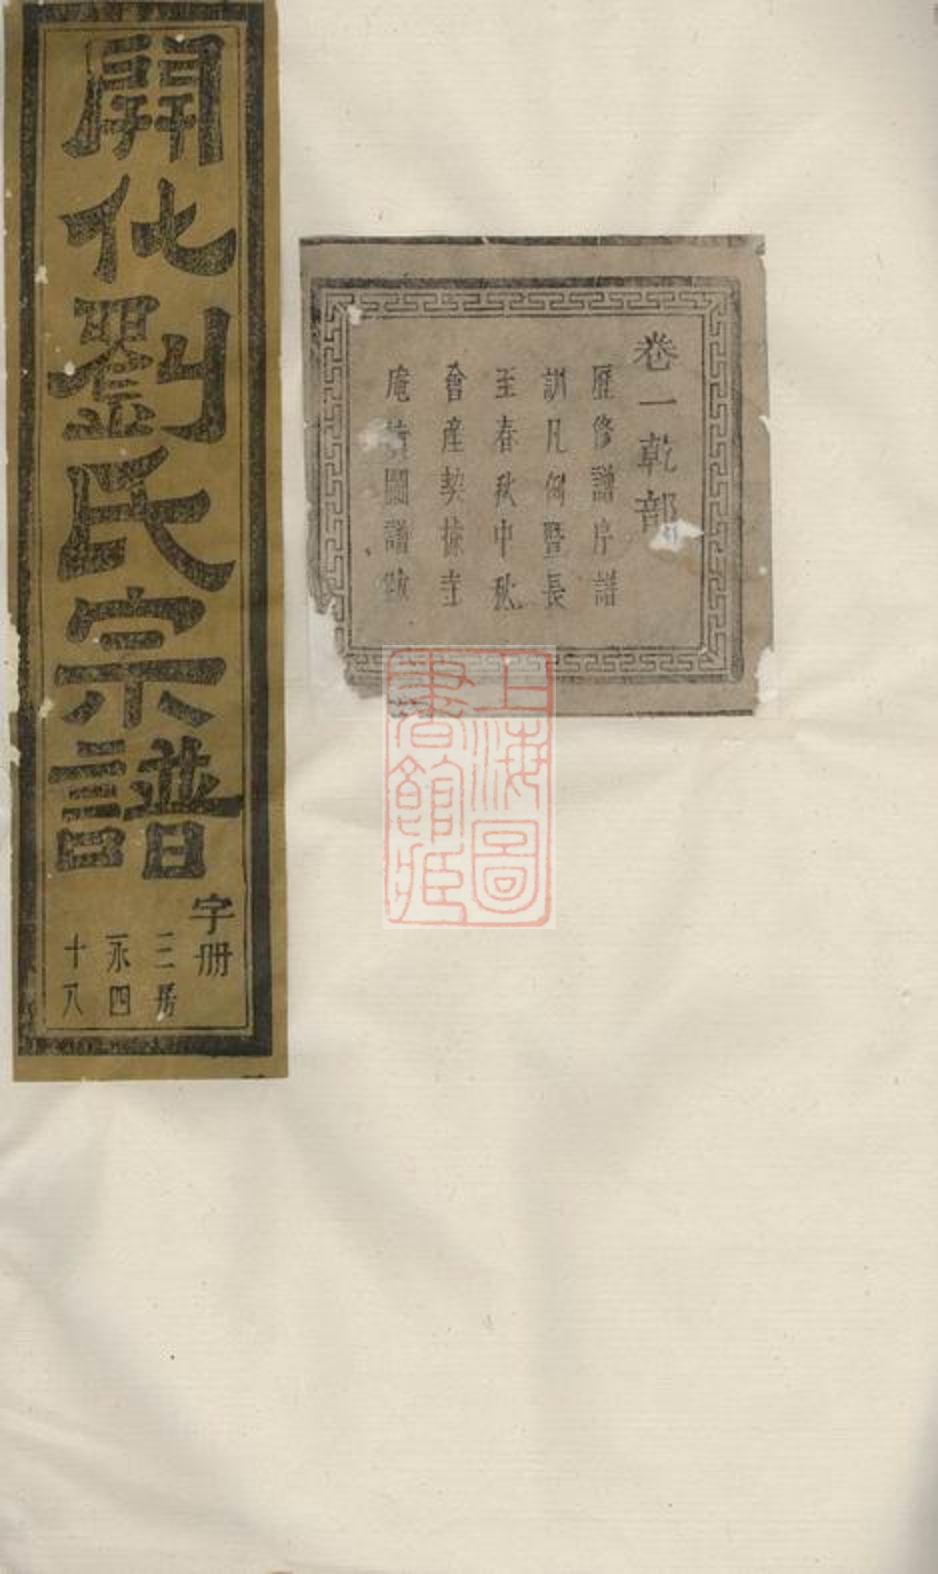 開化劉氏宗譜
字册
三房
永四
十八
卷一乾部
歷修譜序譜
訓凡例暨長
至春秋中秋
會產契據寺
庵 圖譜跋
上海圖
書館藏